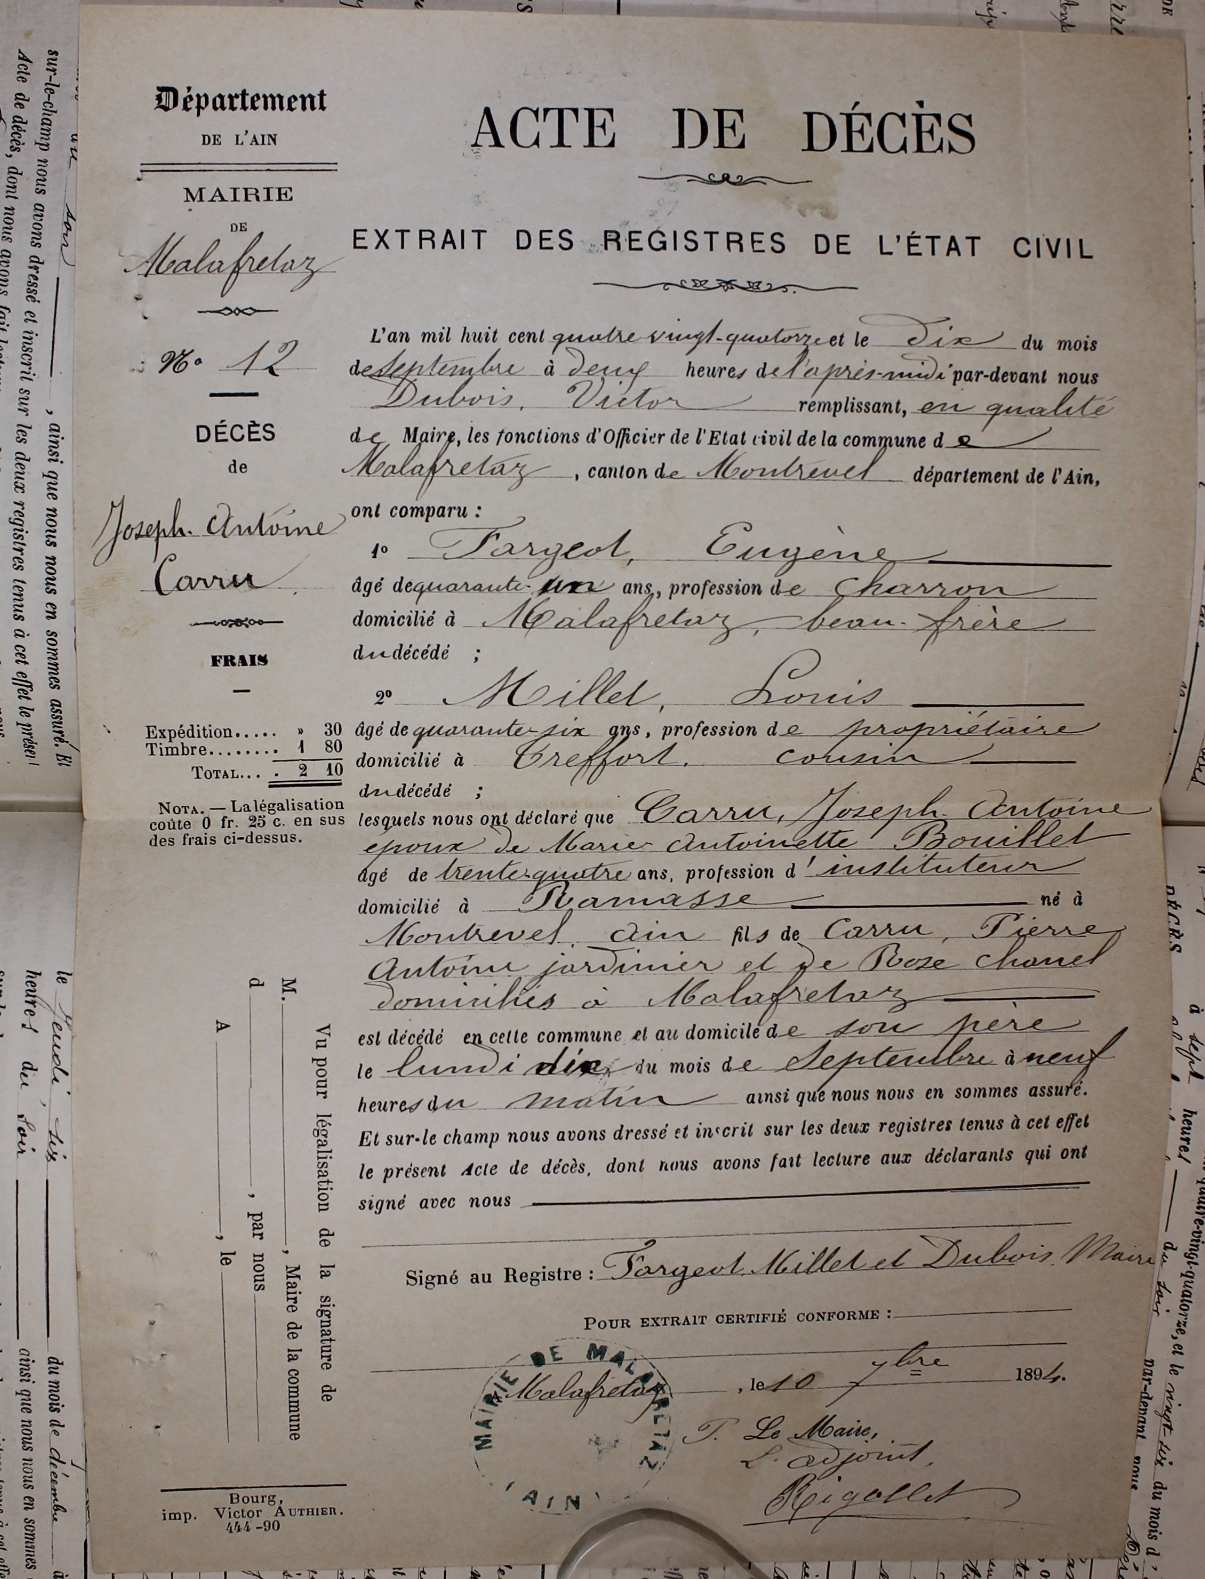 Département
DE L'AIN
MAIRIE
DE
Malafretaz
N° 12
DÉCÈS
de
Joseph-Antoine
Carru
FRAIS
Expédition..... » 30
Timbre........ 1 80
TOTAL... . 2 10
NOTA. — La légalisation
coûte 0 fr. 25 c. en sus
des frais ci-dessus.
Vu pour légalisation de la signature de
M. , Maire de la commune
d , par nous
A , le
Bourg,
imp. Victor AUTHIER.
444-90
ACTE DE DÉCÈS
EXTRAIT DES REGISTRES DE L'ÉTAT CIVIL
L'an mil huit cent quatre vingt-quatorze et le dix du mois
de septembre à deux heures de l'après-midi par-devant nous
Dubois, Victor remplissant, en qualité
de Maire, les fonctions d'Officier de l'Etat civil de la commune de
Malafretaz, canton de Montrevel département de l'Ain,
ont comparu :
1° Fargeot, Eugène
âgé de quarante-un ans, profession de charron
domicilié à Malafretaz, beau-frère
du décédé ;
2° Millet, Louis
âgé de quarante-six ans, profession de propriétaire
domicilié à Treffort, cousin
du décédé ;
lesquels nous ont déclaré que Carru, Joseph-Antoine
époux de Marie-Antoinette Bouillet
âgé de trente-quatre ans, profession d'instituteur
domicilié à Ramasse né à
Montrevel, Ain fils de Carru, Pierre
Antoine jardinier et de Roze Chanel
domiciliés à Malafretaz
est décédé en cette commune et au domicile de son père
le lundi dix du mois de Septembre à neuf
heures du matin ainsi que nous nous en sommes assuré.
Et sur-le champ nous avons dressé et inscrit sur les deux registres tenus à cet effet
le présent Acte de décès, dont nous avons fait lecture aux déclarants qui ont
signé avec nous
Signé au Registre : Fargeot, Millet et Dubois, Maire
POUR EXTRAIT CERTIFIÉ CONFORME :
Malafretaz, le 10 7bre 1894.
MAIRIE DE MALAFRETAZ
(AIN)
P. Le Maire,
L'adjoint,
Rigollet
sur-le-champ nous avons dressé et inscrit sur les deux registres tenus à cet effet le présent
Acte de décès, dont nous avons fait
, ainsi que nous nous en sommes assuré. Et
le Jeudi, six du mois de décembre à
heures du soir ainsi que nous nous en sommes
DÉCÈS
à sept heures du soir
quatre-vingt-quatorze, et le vingt-six du mois d
par-devant nous